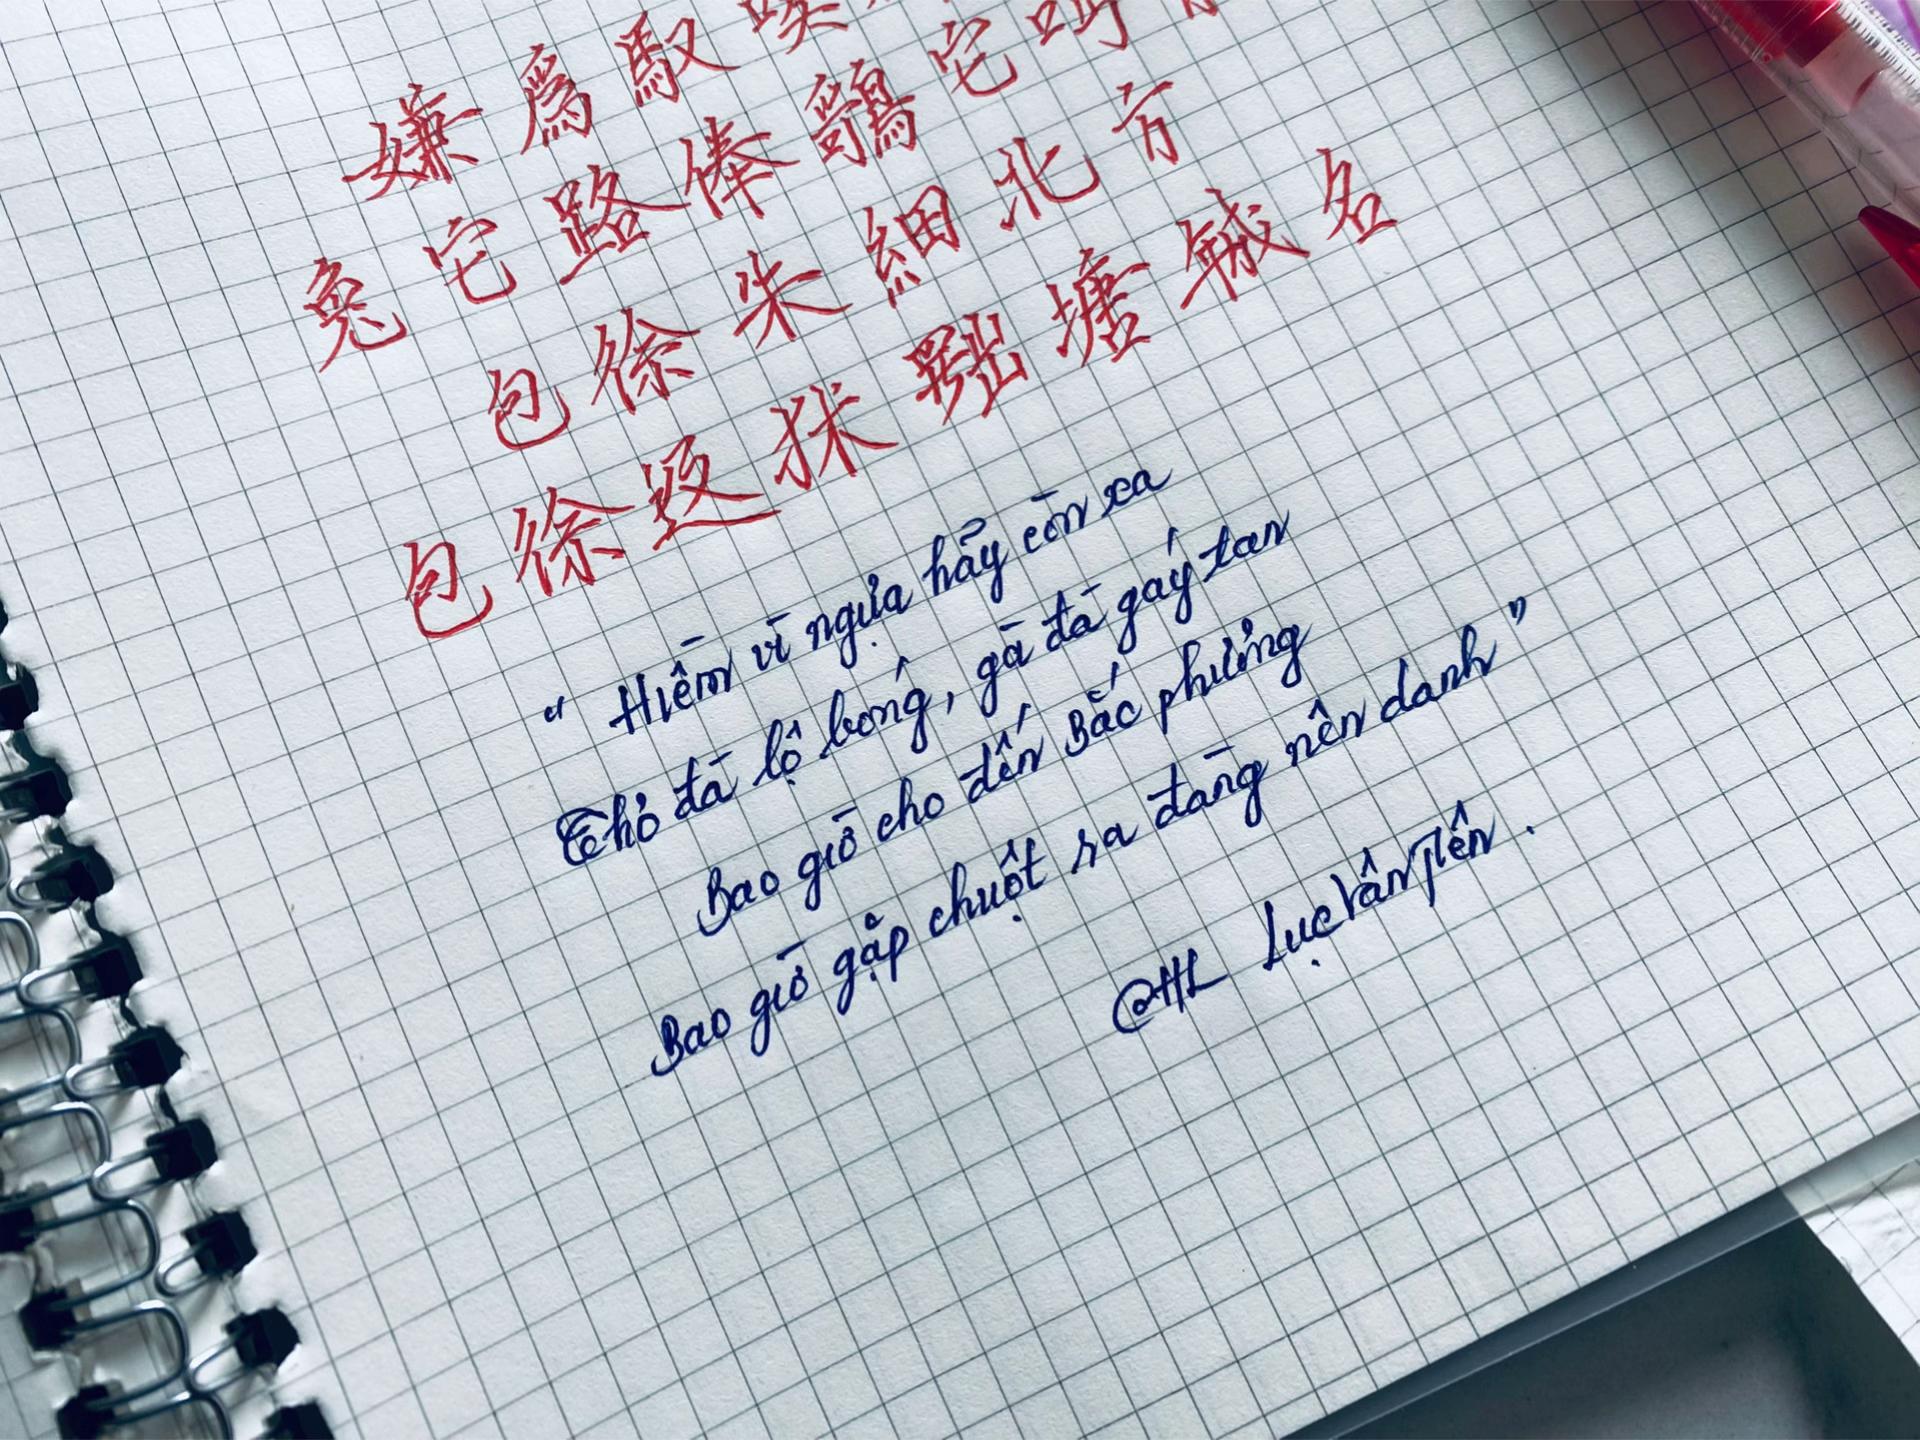 嫌爲馭唉
兔它路俸𪃿它呌
包徐朱細北方
包徐𤝞𦋦塘𢧚名
“Hiềm vì ngựa hãy còn xa
Thỏ đà lộ bóng, gà đà gáy tan
Bao giờ cho đến Bắc phương
Bao giờ gặp chuột ra đàng nên danh”
@HL Lục Vân Tiên.